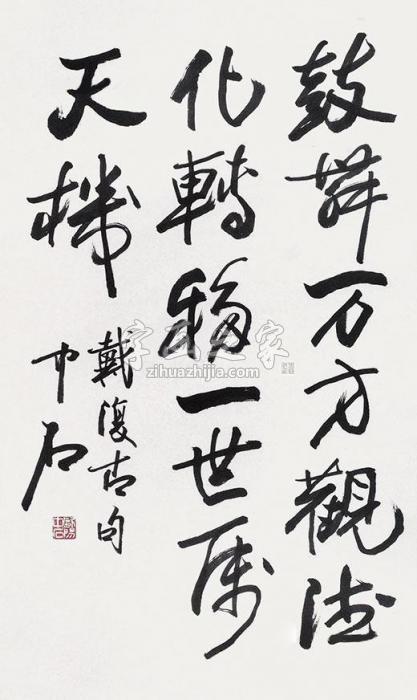 鼓舞万方觀德
化轉移一世属
天機
戴復古句
中石
字画之家
zihuazhijia.com